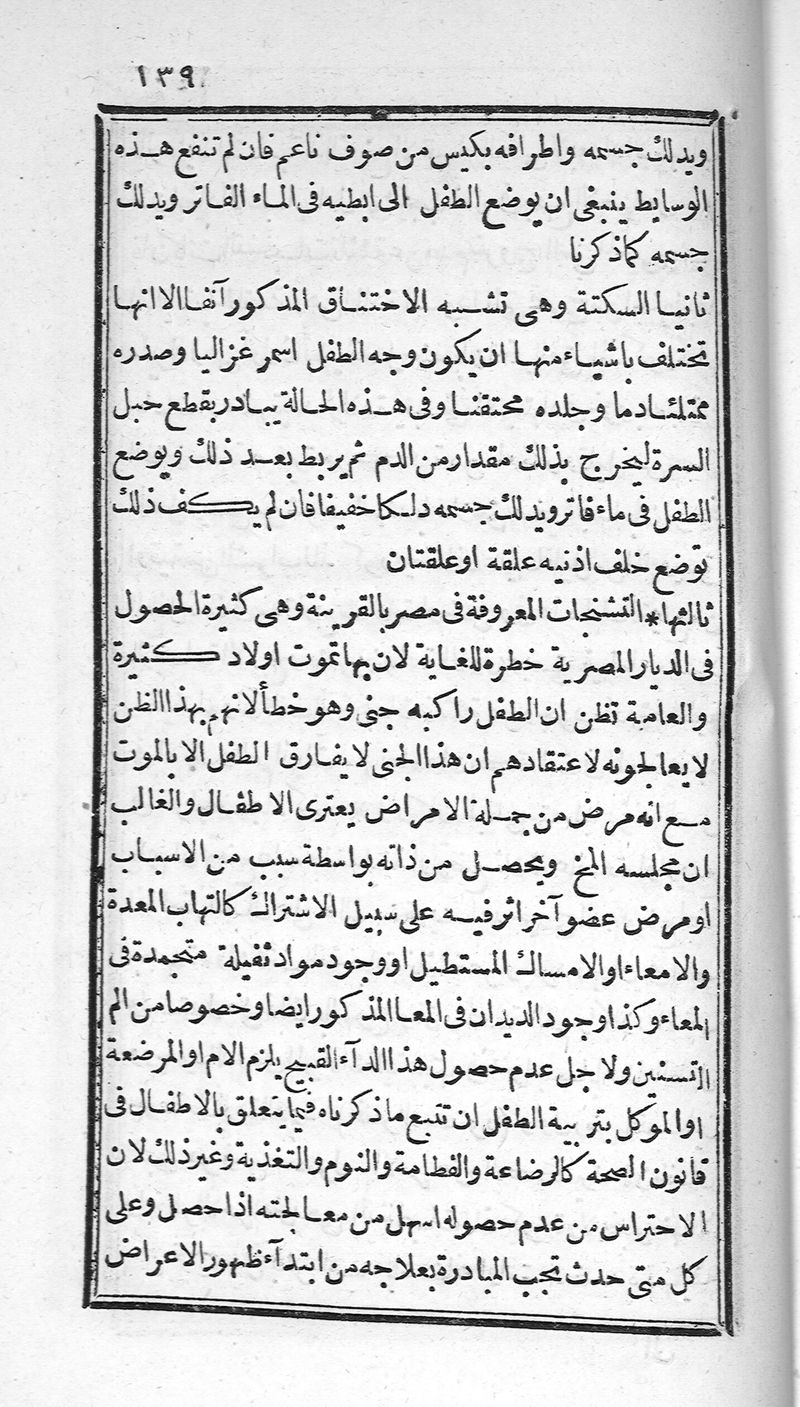 ١٣٩
ويدلك جسمه واطرافه بكيس من صوف ناعم فان لم تنفع هذه
الوسايط ينبغى ان يوضع الطفل الى ابطيه فى الماء الفاتر ويدلك
جسمه كما ذكرنا
ثانيا السكتة وهى تشبه الاختناق المذكور آنفا الا انها
تختلف باشياء منها ان يكون وجه الطفل اسمر غزاليا وصدره
ممتلئا دما وجلده محتقنا وفى هذه الحالة يبادر بقطع حبل
السرة ليخرج بذلك مقدار من الدم ثم يربط بعد ذلك ويوضع
الطفل فى ماء فاتر ويدلك جسمه دلكا خفيفا فان لم يكف ذلك
توضع خلف اذنيه علقة او علقتان
ثالثها * التشنجات المعروفة فى مصر بالقرينة وهى كثيرة الحصول
فى الديار المصرية خطرة للغاية لان بها تموت اولاد كثيرة
والعامة تظن ان الطفل راكبه جنى وهو خطأ لانهم بهذا الظن
لا يعالجونه لاعتقادهم ان هذا الجنى لا يفارق الطفل الا بالموت
مع انه مرض من جملة الامراض يعترى الاطفال والغالب
ان مجلسه المخ ويحصل من ذاته بواسطة سبب من الاسباب
او مرض عضو آخر اثر فيه على سبيل الاشتراك كالتهاب المعدة
والامعاء او الامساك المستطيل او وجود مواد ثفيلة متجمدة فى
المعاء وكذا وجود الديدان فى المعا المذكور ايضا وخصوصا من الم
التسنين ولاجل عدم حصول هذا الدآء القبيح يلزم الام او المرضعة
او الموكل بتربية الطفل ان تتبع ما ذكرناه فيما يتعلق بالاطفال فى
قانون الصحة كالرضاعة والفطامة والنوم والتغذية وغير ذلك لان
الاحتراس من عدم حصوله اسهل من معالجته اذا حصل وعلى
كل متى حدث تجب المبادرة بعلاجه من ابتدآء ظهور الاعراض